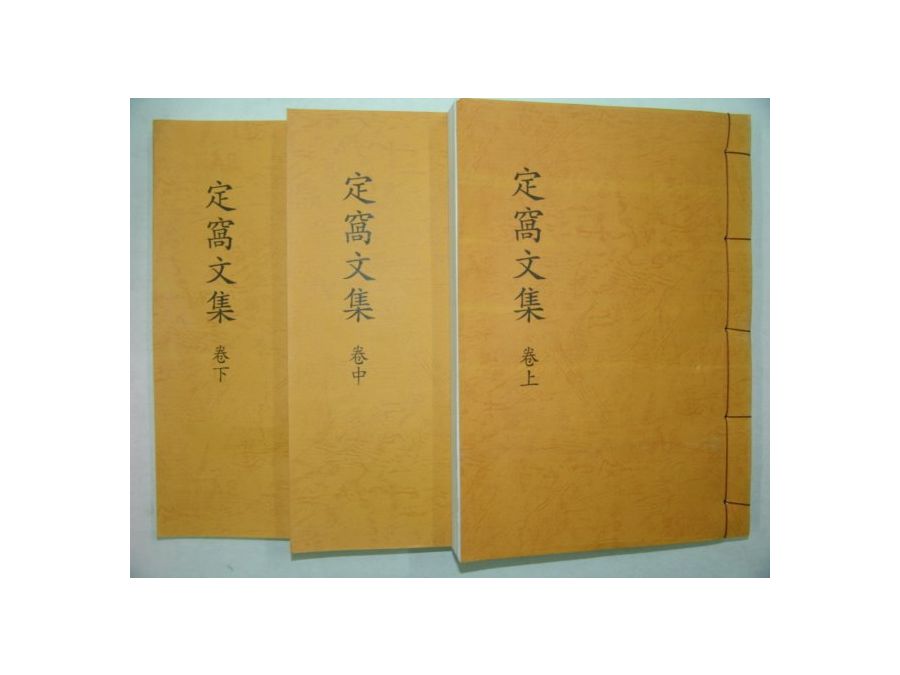 定窩文集 卷上
定窩文集 卷中
定窩文集 卷下